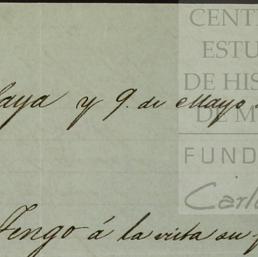 CENT
ESTU
DE HIS
DE M
FUND
Carl
laya y 9. de Mayo
Tengo á la vista su